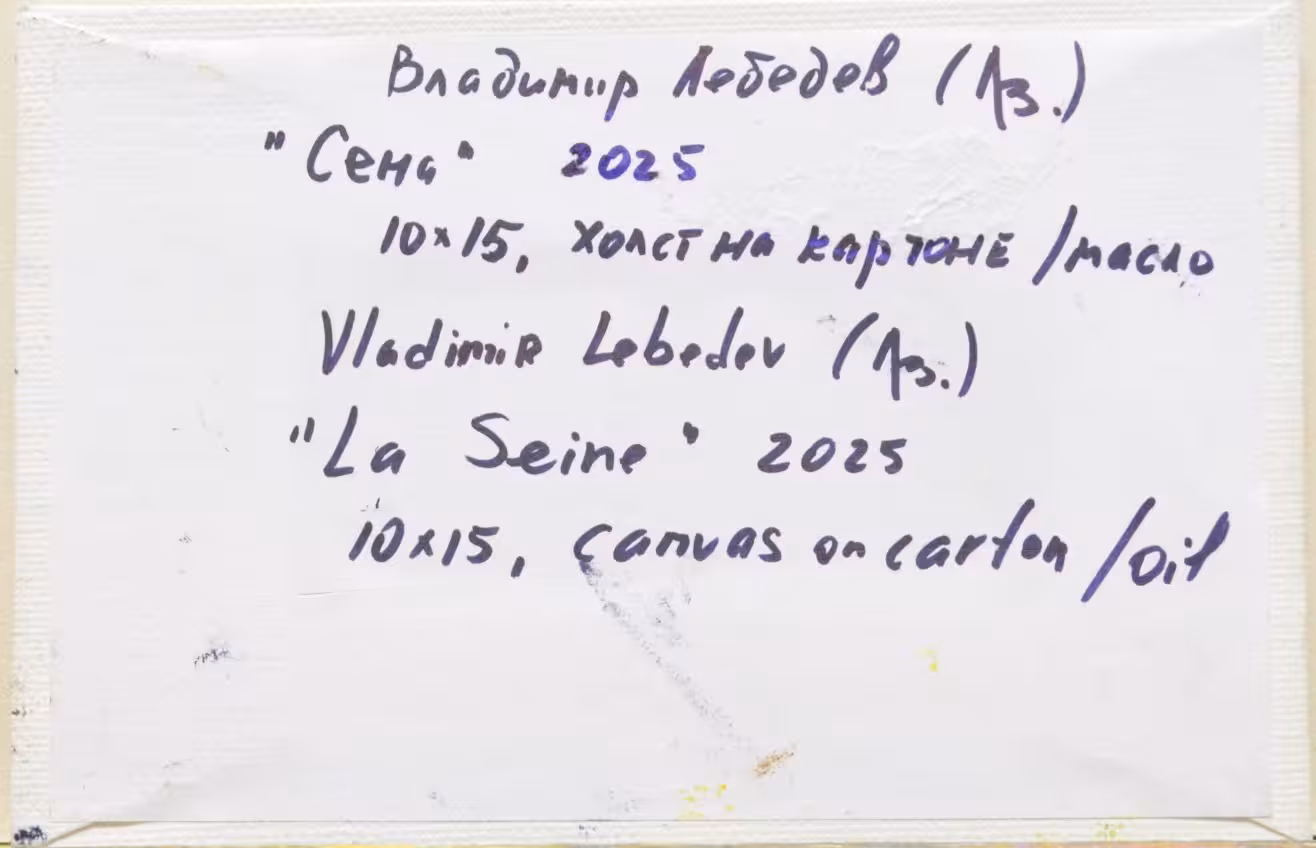 Владимир Лебедев (Лз.)
"Сена" 2025
10×15, холст на картоне /масло
Vladimir Lebedev (Лз.)
"La Seine" 2025
10×15, canvas on carton /oil